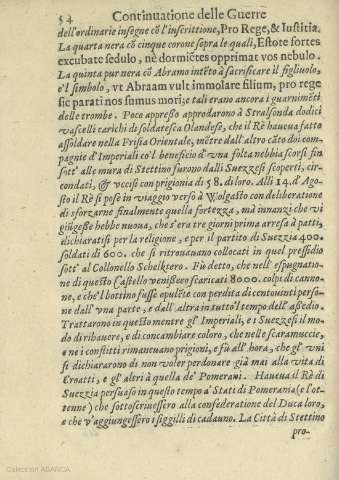 54 Continuatione delle Guerre
dell'ordinarie insegne cõ l'inscrittione, Pro Rege, & Iustitia.
La quarta nera cõ cinque corone sopra le quali, Estote fortes
excubate sedulo, nè dormiẽtes opprimat vos nebulo.
La quinta pur nera cõ Abramo intẽto à sacrificare il figliuolo,
e'l simbolo, vt Abraam vult immolare filium, pro rege
sic parati nos sumus mori; e tali erano ancora i guarnimẽti
delle trombe. Poco appresso approdarono à Stralsonda dodici
vascelli carichi di soldatesca Olandese, che il Rè haueua fatto
assoldare nella Frisia Orientale, mẽtre dall'altro cãto doi com-
pagnie d'Imperiali co'l beneficio d'vna folta nebbia scorsi fin
sott'alle mura di Stettino furono dalli Suezzesi scoperti, cir-
condati, & vccisi con prigionia di 58. di loro. Alli 14. d'Ago-
sto il Rè si pose in viaggio versò à Wolgasto con deliberatione
di sforzarne finalmente quella fortezza, mà innanzi che vi
giũgesse hebbe nuoua, che s'era tre giorni prima arresa à patti,
dichiaratisi per la religione, e per il partito di Suezzia 400.
soldati di 600. che si ritrouauano collocati in quel pressidio
sott'al Collonello Schelktero. Fù detto, che nell'espugnatio-
ne di questo Castello venissero scaricati 8000. colpi di canno-
ne, e che'l bottino fusse opulẽte con perdita di centouinti perso-
ne dall'vna parte, e dall'altra in tutto'l tempo dell'assedio.
Trattarono in questo mentre gl'Imperiali, e i Suezzesi il mo-
do di rihauere, e di concambiare coloro, che nelle scaramuccie,
e ne i conflitti rimaneuano prigioni, e fù all'hora, che gl'vni
si dichiararono di non voler perdonare già mai alla vita di
Croatti, e gl'altri à quella de' Pomerani. Haueua il Rè di
Suezzia persuaso in questo tempo a' Stati di Pomerania (e l'ot-
tenne) che sottoscriuessero alla confederatione del Duca loro,
e che v'aggiungessero i siggilli di cadauno. La Città di Stettino
pro-
Colección ABANCA